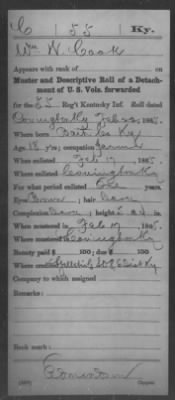 C | 55 | Ky.
Wm N. Cook
Appears with rank of
Muster and Descriptive Roll of a Detach-
ment of U. S. Vols. forwarded
for the 55 Reg't Kentucky Inf. Roll dated
Covington Ky Feb 22, 1865.
Where born Bath Co Ky
Age 18 y'rs; occupation Farmer
When enlisted Feb 17, 1865.
Where enlisted Covington Ky
For what period enlisted One years.
Eyes ; hair
Complexion ; height 5 ft. in.
When mustered in Feb 17, 1865.
Where mustered in Covington Ky
Bounty paid $ 100; due $ 100
Where credited
Company to which assigned
Remarks:
Book mark:
Copyist.